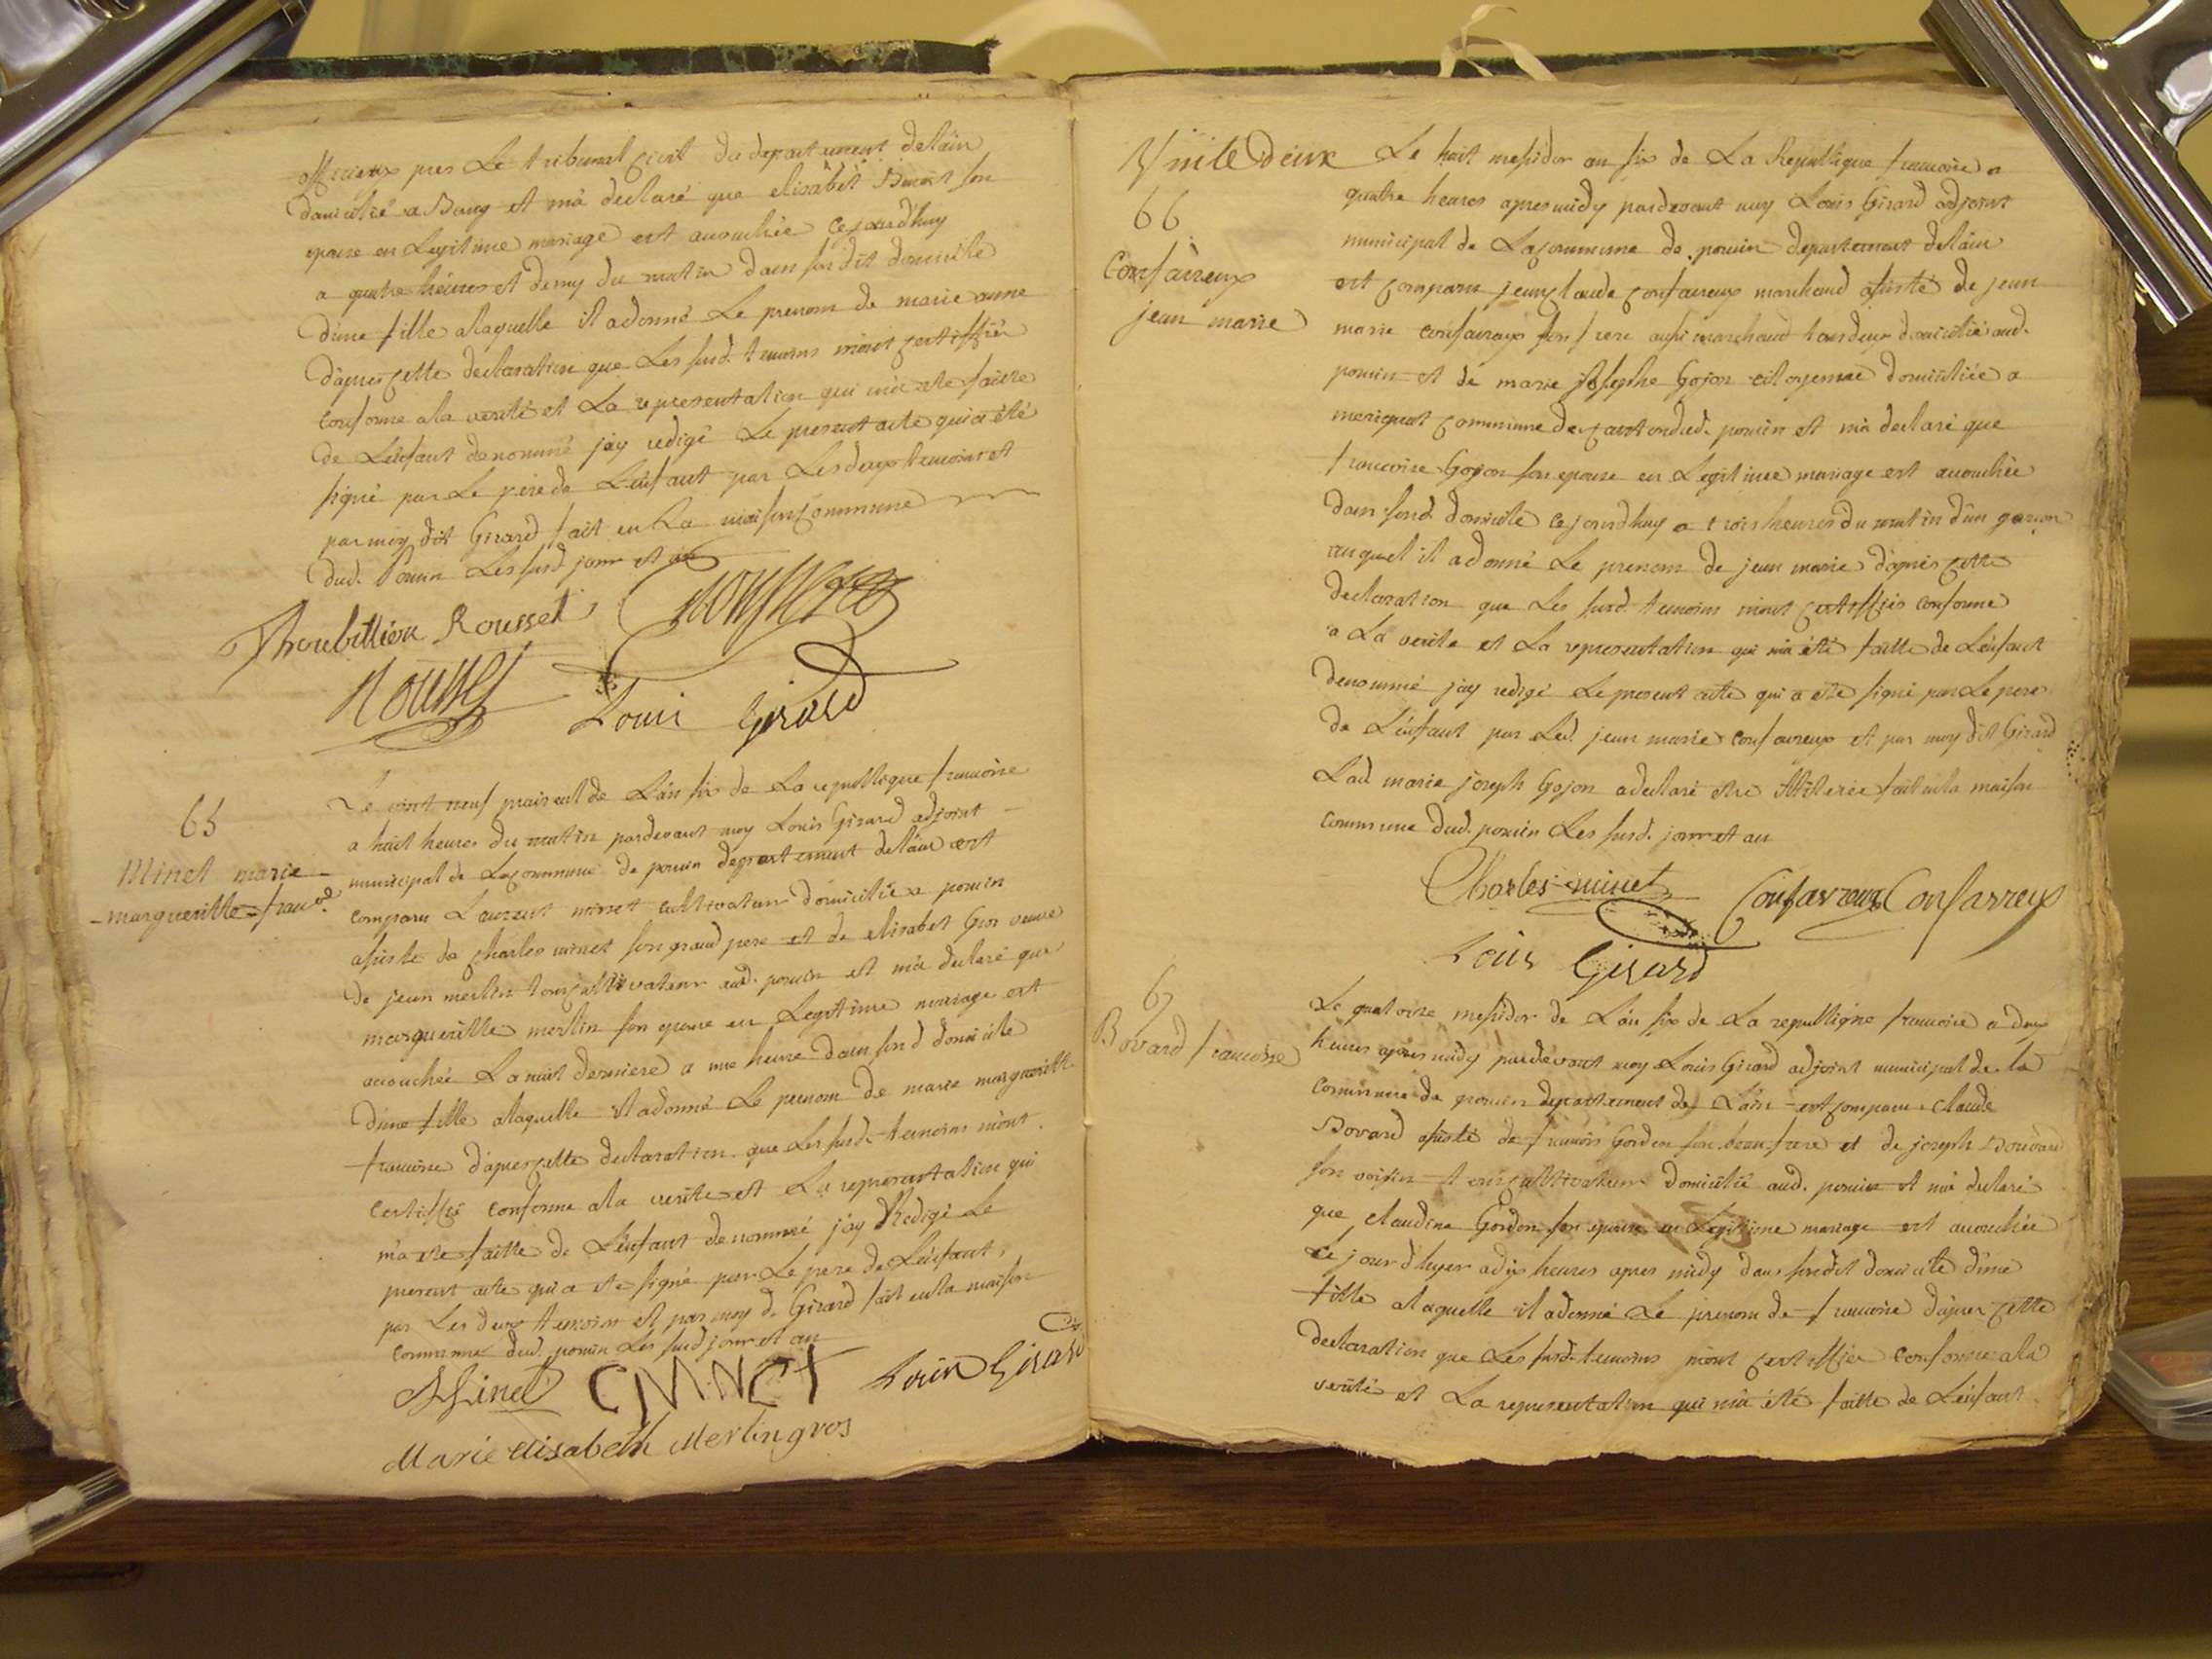 officieux pres Le tribunal civil du departement delain
domicilié a Bourg et m'a declaré que elisabet Benoit son
epouse en Legitime mariage est accouchée cejourd'huy
a quatre heures et demy du matin dans son dit domicille
d'une fille alaquelle il adonné Le prenom de marie anne
d'apres cette declaration que Les susd. temoins m'ont certiffiér
conforme ala verité et La representation qui m'a ete faitte
de L'enfant denommé j'ay redigé Le present acte qui a été
signé par Le pere de L'enfant par Les deux temoins et
par moy dit Girard fait en La maison commune
dud. Poncin Les susd jour et an
Thoubillion Rousset
Rousset Louis Girard
65
Minet marie
margueritte francse.
Le vint neuf prairial de L'an six de La republique francoise
a huit heures du matin pardevant moy Louis Girard adjoint
municipal de Lacommune de poncin departement delain est
comparu Laurent minet cultivateur domicilié a poncin
assisté de charles minet son grand pere et de elisabet Gros veuve
de jean merlin tous cultivateur aud. poncin et m'a declaré que
margueritte merlin son epouse en Legitime mariage est
accouchée La nuit derniere a une heure dans sond domicile
d'une fille alaquelle il adonné Le prenom de marie margueritte
francoise d'apres cette declaration que Les susd. temoins m'ont
certiffié conforme ala verité et La representation qui
m'a ete faitte de L'enfant denommé j'ay Redigé Le
present acte qui a ete signé par Le pere de L'enfant,
par Les deux temoins et par moy d. Girard fait enla maison
commune dud. poncin Les susd jour et an
Minet CMINET Louis Girard
Marie elisabeth Merlin gros
Vinte deux
66
Confavreux
jean marie
Le huit messidor an six de La Republique francoise a
quatre heures apres midy pardevant moy Louis Girard adjoint
municipal de Lacommune de poncin departement delain
est comparu jean claude confavreux marchand assisté de jean
marie confavreux son frere aussi marchand tous deux domicilié aud.
poncin et de marie josephe Gojon citoyenne domiciliée a
merignat commune du canton dud. poncin et m'a declaré que
francoise Gojon son epouse en Legitime mariage est accouchée
dans sond. domicile cejourd'huy a trois heures du matin d'un garcon
auquel il adonné Le prenom de jean marie d'apres cette
declaration que Les susd. temoins m'ont certiffiés conforme
a La verite et La representation qui m'a été faitte de L'enfant
denommé j'ay redigé Le present acte qui a ete signé par Le pere
de L'enfant par Led. jean marie confavreux et par moy dit Girard
Lad marie joseph Gojon adeclaré etre illiterée fait enla maison
commune dud. poncin Les susd. jour et an
Charles minet Confavreux Confavreux
Louis Girard
67
Bovard francoise
Le quatorze messidor de L'an six de La republique francoise a deux
heures apres midy pardevant moy Louis Girard adjoint municipal de la
commune de poncin departement de L'ain est comparu claude
Bovard assisté de francois Gordon son beau frere et de joseph Bovard
son voisin tous cultivateur domicilié aud. poncin et m'a declaré
que claudine Gordon son epouse en Legitime mariage est accouchée
Le jour d'hyer a dix heures apres midy dans son dit domicile d'une
fille alaquelle il adonné Le prenom de francoise d'apres cette
declaration que Les susd. temoins m'ont certiffiée conforme ala
verité et La representation qui m'a été faitte de L'enfant